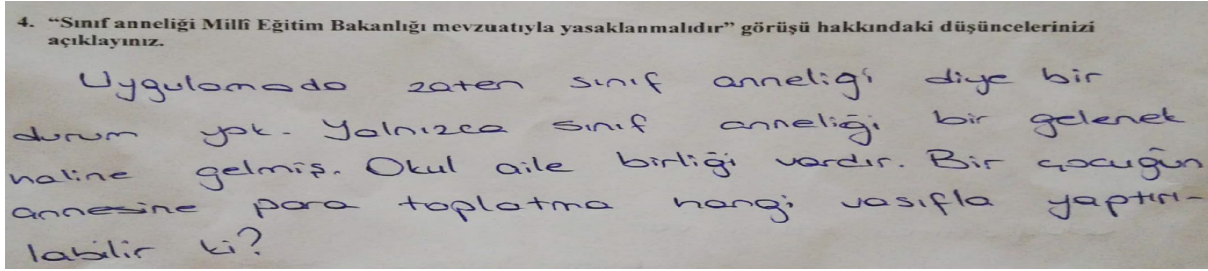 4. “Sınıf anneliği Millî Eğitim Bakanlığı mevzuatıyla yasaklanmalıdır” görüşü hakkındaki düşüncelerinizi
açıklayınız.
Uygulamada zaten sınıf anneliği diye bir
durum yok. Yalnızca sınıf anneliği bir gelenek
haline gelmiş. Okul aile birliği vardır. Bir çocuğun
annesine para toplatma hangi vasıfla yaptırı-
labilir ki?